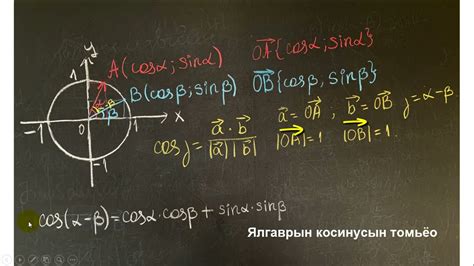 y
1 A(cosα; sinα) OA⃗{cosα, sinα}
B(cosβ; sinβ) OB⃗{cosβ, sinβ}
-1 0 β 1 x
cosγ = a⃗ · b⃗ / |a⃗| |b⃗| a⃗ = OA⃗ ; b⃗ = OB⃗ γ = α - β
|OA⃗| = 1 |OB⃗| = 1.
-1
cos(α-β) = cosα · cosβ + sinα · sinβ
Ялгаврын косинусын томьёо